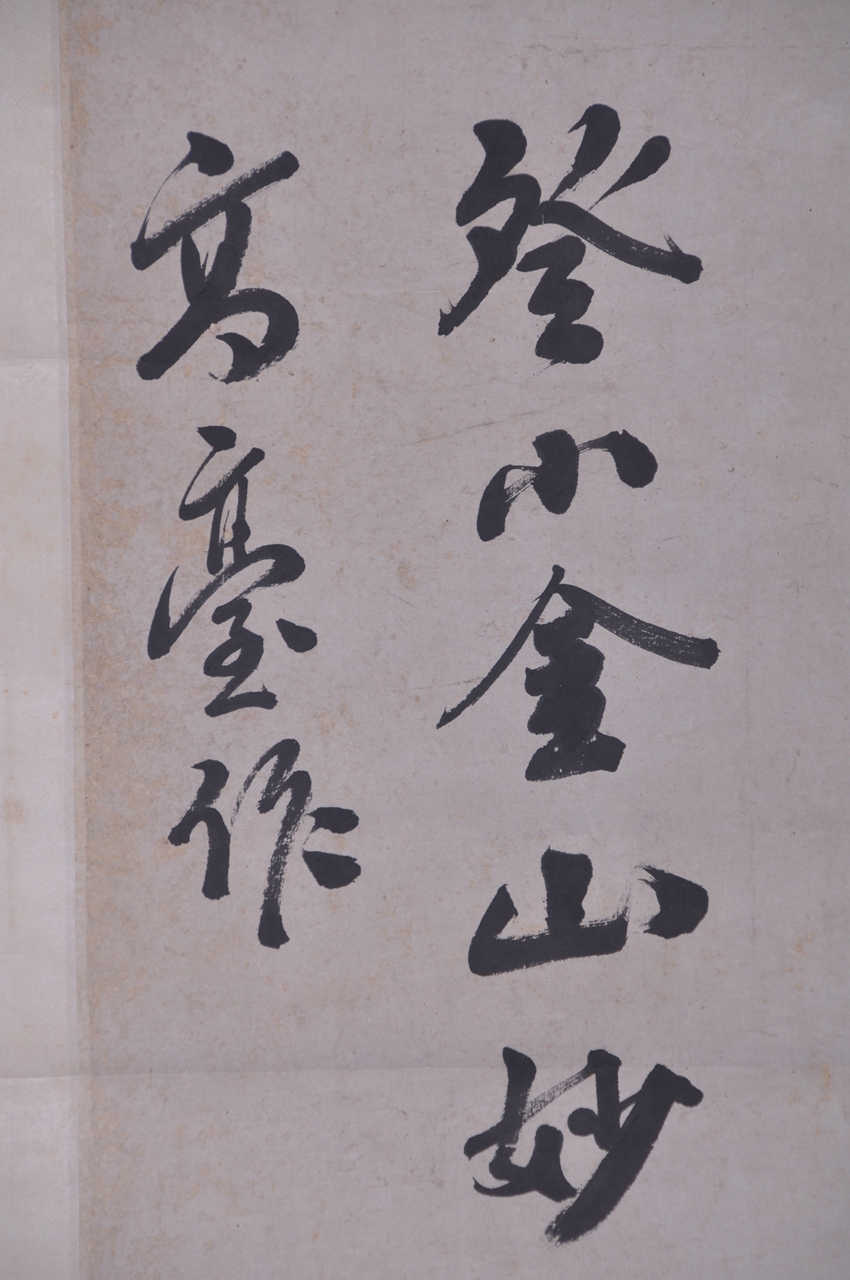 登小金山妙
高臺作